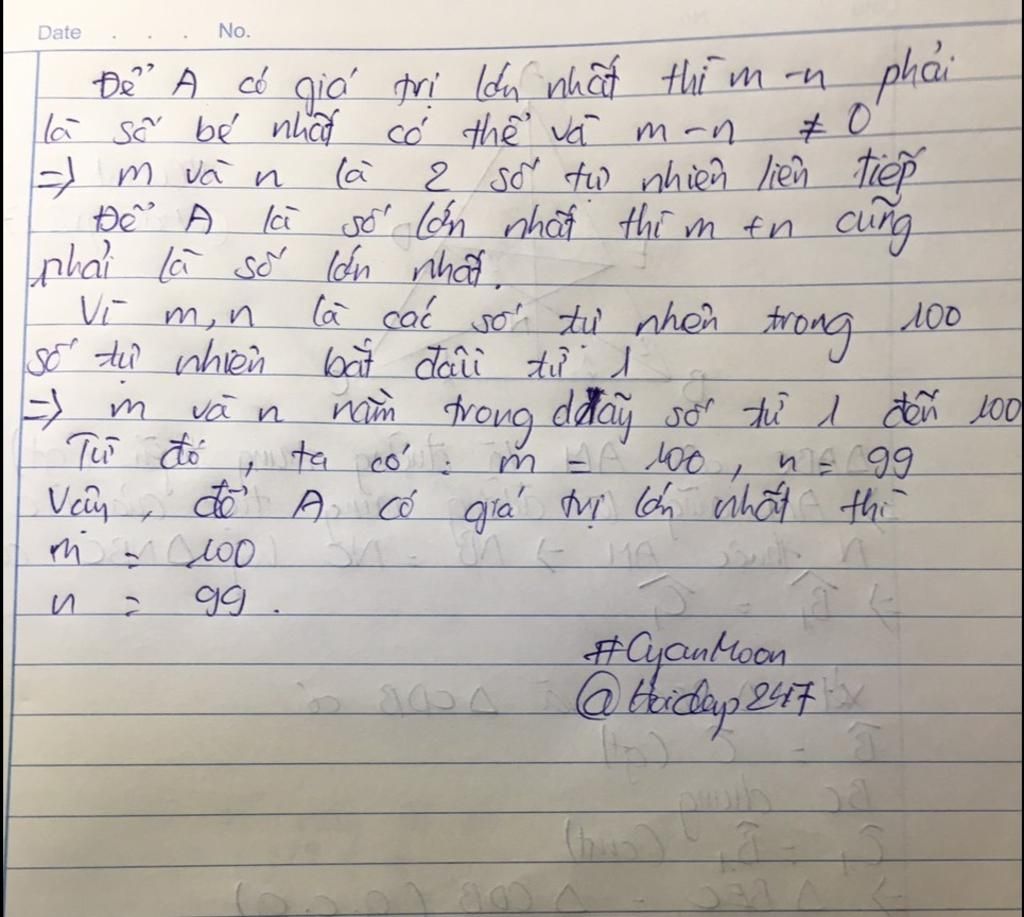 Date . . . No.
Để A có giá trị lớn nhất thì m - n phải
là số bé nhất có thể và m - n ≠ 0
=> m và n là 2 số tự nhiên liên tiếp
Để A là số lớn nhất thì m + n cũng
phải là số lớn nhất.
Vì m, n là các số tự nhên trong 100
số tự nhiên bắt đầu từ 1
=> m và n nằm trong dãy số từ 1 đến 100
Từ đó, ta có: m = 100, n = 99
Vậy, để A có giá trị lớn nhất thì
m = 100
n = 99.
#CyanMoon
@hoidap247